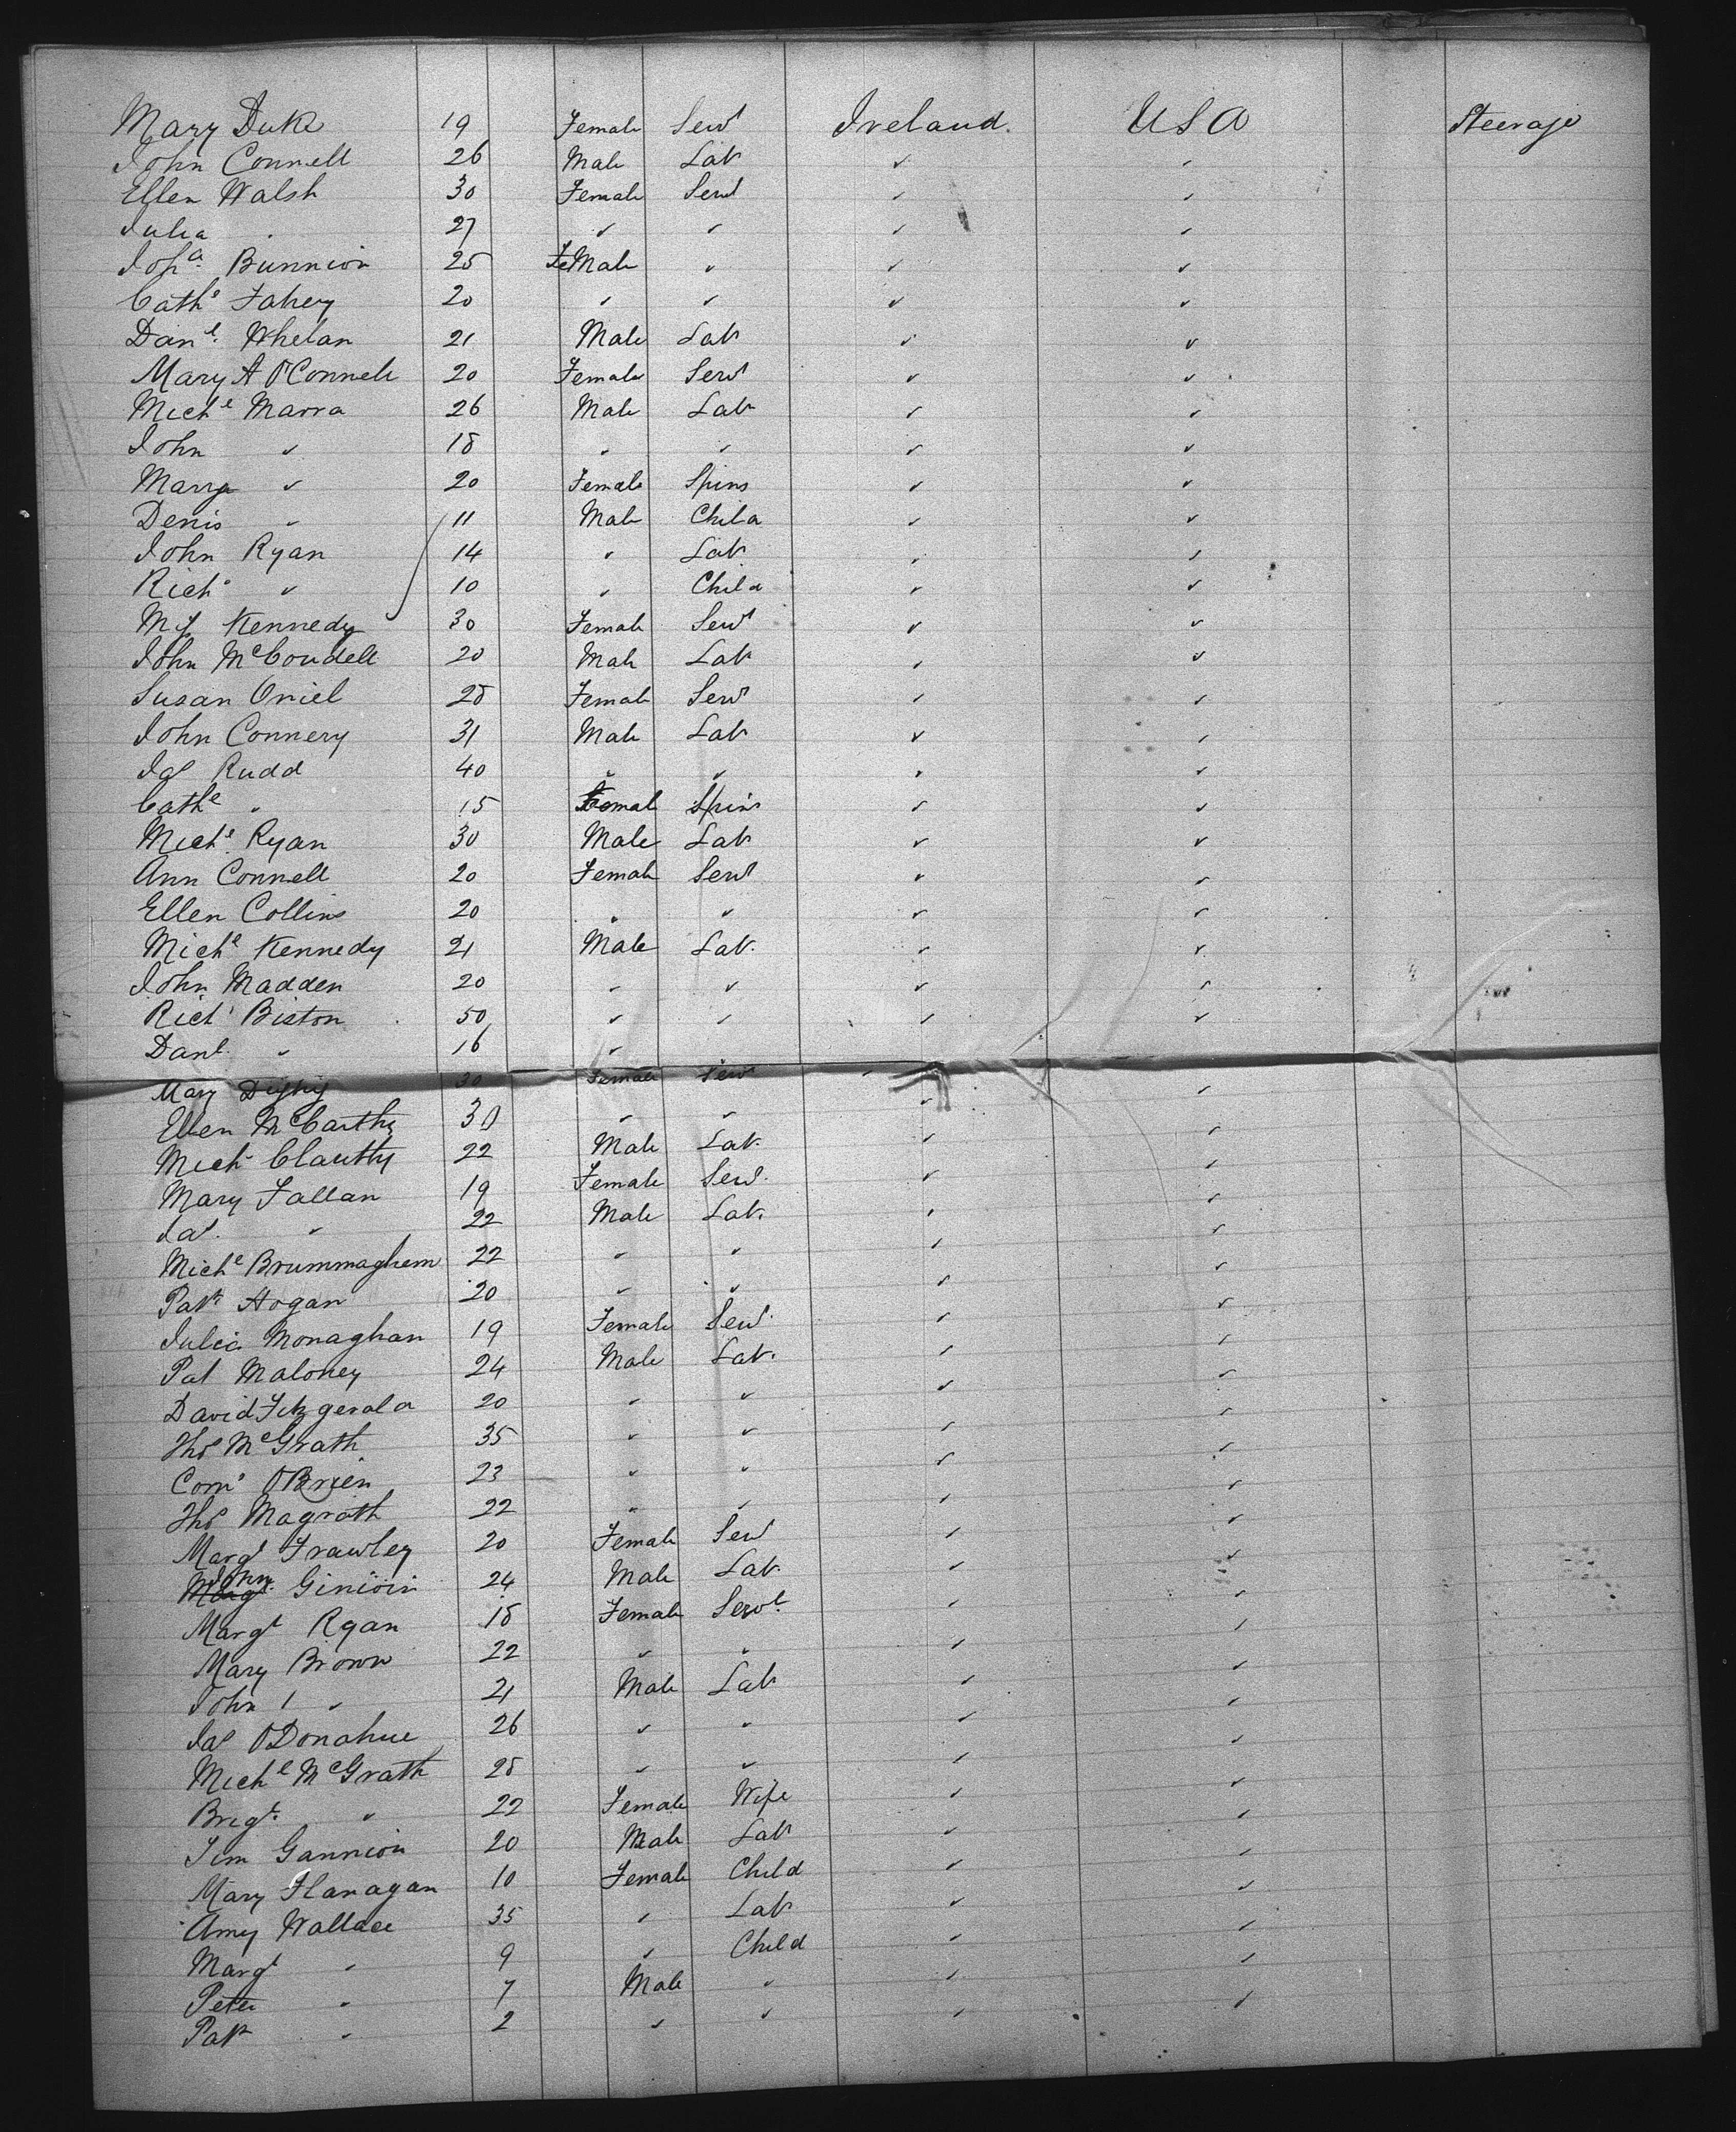 Mary Duke 19 Female Servt Ireland. USA Steerage
John Connell 26 Male Lab ✓ ✓
Ellen Walsh 30 Female Servt ✓ ✓
Julia " 27 ✓ ✓ ✓ ✓
Joha. Bunnion 25 FeMale ✓ ✓ ✓
Cathe Fahey 20 ✓ ✓ ✓ ✓
Danl. Whelan 21 Male Lab ✓ ✓
Mary A O'Connell 20 Female Servt ✓ ✓
Michl Marra 26 Male Lab ✓ ✓
John ✓ 18 ✓ ✓ ✓ ✓
Mary ✓ 20 Female Spins ✓ ✓
Denis ✓ 11 Male Child ✓ ✓
John Ryan 14 ✓ Lab ✓ ✓
Richd ✓ 10 ✓ Child ✓ ✓
Kennedy 30 Female Servt ✓ ✓
John 20 Male Lab ✓ ✓
Susan Oniel 28 Female Servt ✓ ✓
John Connery 31 Male Lab ✓ ✓
Jas Rudd 40 ✓ ✓ ✓ ✓
Cathe " 15 Female Spins ✓ ✓
Michl. Ryan 30 Male Lab ✓ ✓
Ann Connell 20 Female Servt ✓ ✓
Ellen Collins 20 ✓ ✓ ✓ ✓
Michl Kennedy 21 Male Lab. ✓ ✓
John Madden 20 ✓ ✓ ✓ ✓
Richd Biston 50 ✓ ✓ ✓ ✓
Danl. ✓ 16 ✓
Mary 30 Female Servt ✓ ✓
Ellen McCarthy 30 ✓ ✓ ✓ ✓
Michl 22 Male Lab. ✓ ✓
Mary Fallan 19 Female Servt. ✓ ✓
Jas. " 22 Male Lab. ✓ ✓
Michl Brummaghem 22 ✓ ✓ ✓ ✓
Patk Hogan 20 ✓ ✓ ✓ ✓
Julia Monaghan 19 Female Servt ✓ ✓
Pat Maloney 24 Male Lab. ✓ ✓
David Fitzgerald 20 ✓ ✓ ✓ ✓
Thos McGrath 35 ✓ ✓ ✓ ✓
Corns O'Brien 23 ✓ ✓ ✓ ✓
Thos Magrath 22 ✓ ✓ ✓ ✓
Margt Frawley 20 Female Servt ✓ ✓
John Ginioin 24 Male Lab. ✓ ✓
Margt Ryan 18 Female Servt. ✓ ✓
Mary Brown 22 ✓ ✓ ✓ ✓
John " 21 Male Lab ✓ ✓
Jas O'Donahue 26 ✓ ✓ ✓ ✓
Michl McGrath 28 ✓ ✓ ✓ ✓
Brigt. ✓ 22 Female Wife ✓ ✓
Tim Gannion 20 Male Lab ✓ ✓
Mary Flanagan 10 Female Child ✓ ✓
Amy Wallace 35 ✓ Lab ✓ ✓
Margt " 9 ✓ Child ✓ ✓
Peter " 7 Male ✓ ✓ ✓
Patk " 2 ✓ ✓ ✓ ✓